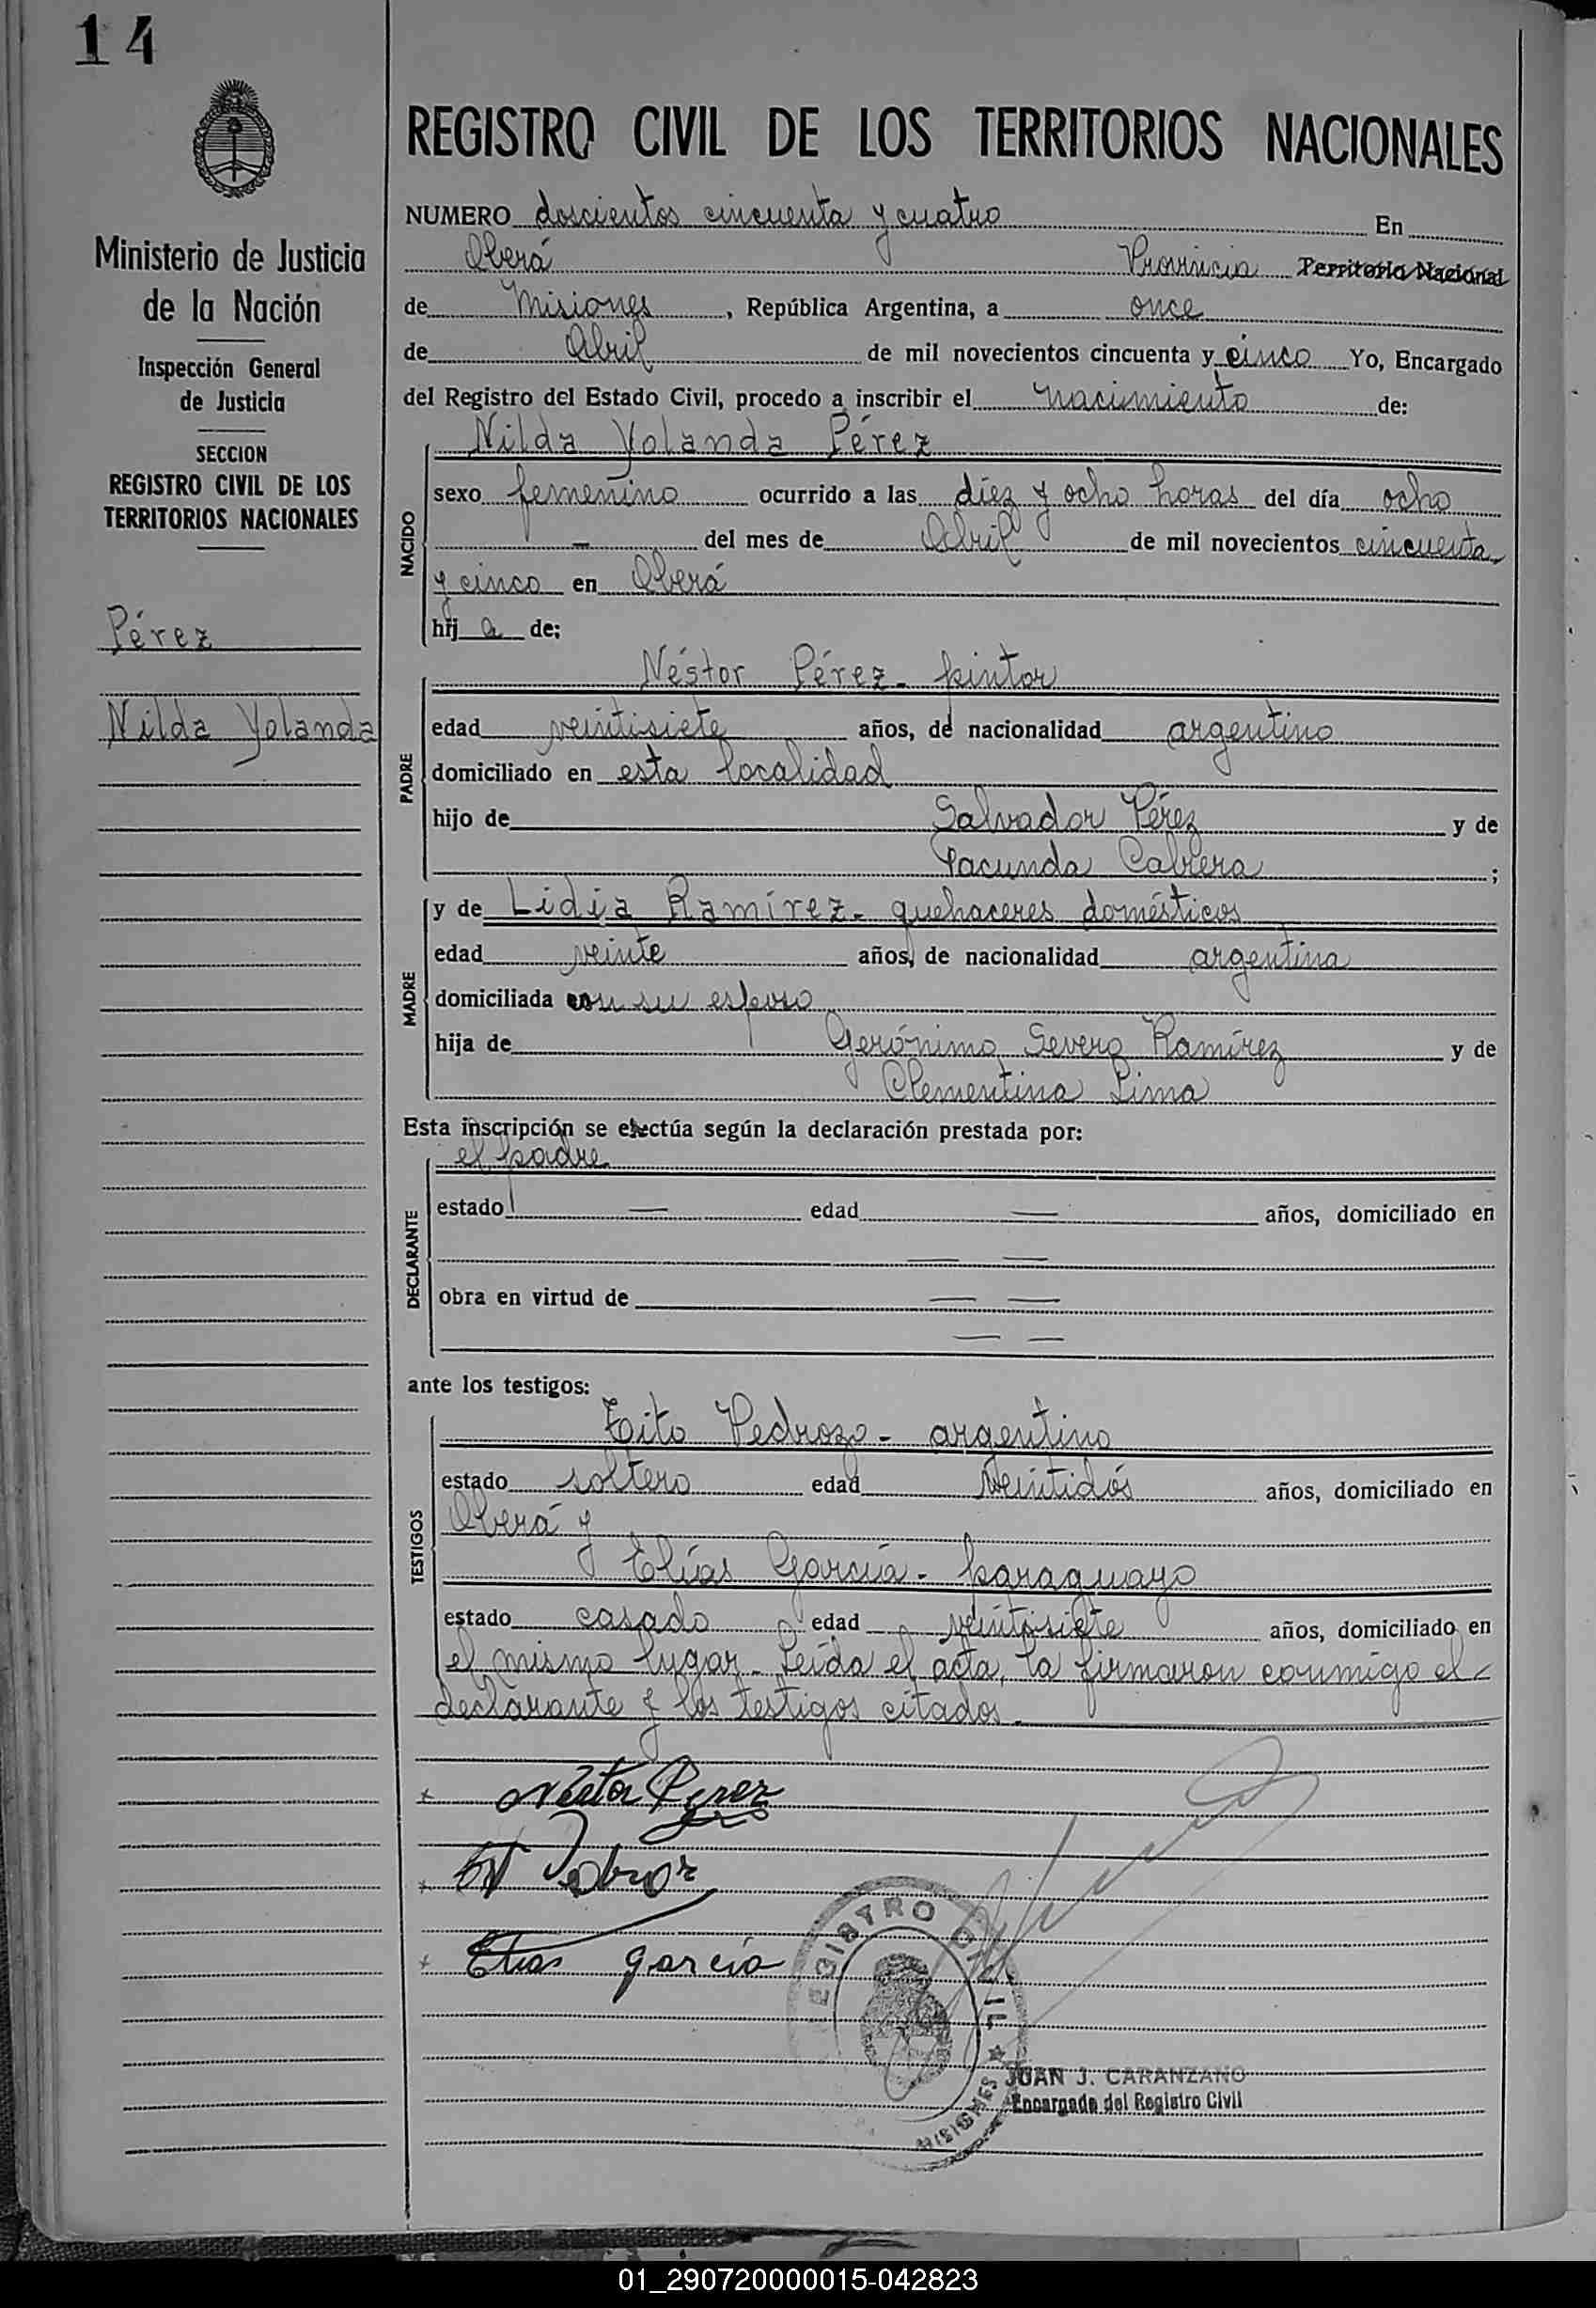 14
REGISTRO CIVIL DE LOS TERRITORIOS NACIONALES
Ministerio de Justicia
de la Nación
Inspección General
de Justicia
SECCION
REGISTRO CIVIL DE LOS
TERRITORIOS NACIONALES
Pérez
Nilda Yolanda
NUMERO doscientos cincuenta y cuatro En
Oberá Provincia Territorio Nacional
de Misiones, República Argentina, a once
de Abril de mil novecientos cincuenta y cinco Yo, Encargado
del Registro del Estado Civil, procedo a inscribir el nacimiento de:
NACIDO
Nilda Yolanda Pérez
sexo femenino ocurrido a las diez y ocho horas del día ocho
— del mes de Abril de mil novecientos cincuenta
y cinco en Oberá
hij a de:
PADRE
Néstor Pérez - pintor
edad veintisiete años, de nacionalidad argentino
domiciliado en esta localidad
hijo de Salvador Pérez y de
Facunda Cabrera ;
MADRE
y de Lidia Ramírez - quehaceres domésticos
edad veinte años, de nacionalidad argentina
domiciliada con su esposo
hija de Gerónimo Severo Ramírez y de
Clementina Lima
Esta inscripción se efectúa según la declaración prestada por:
DECLARANTE
el padre
estado — edad — años, domiciliado en
— —
obra en virtud de — —
— —
ante los testigos:
TESTIGOS
Tito Pedrozo - argentino
estado soltero edad veintidós años, domiciliado en
Oberá y
Elías García - paraguayo
estado casado edad veintisiete años, domiciliado en
el mismo lugar - Leída el acta, la firmaron conmigo el
declarante y los testigos citados -
Néstor Perez
Elias garcia
REGISTRO CIVIL
MISIONES
JUAN J. CARANZANO
Encargado del Registro Civil
01_290720000015-042823